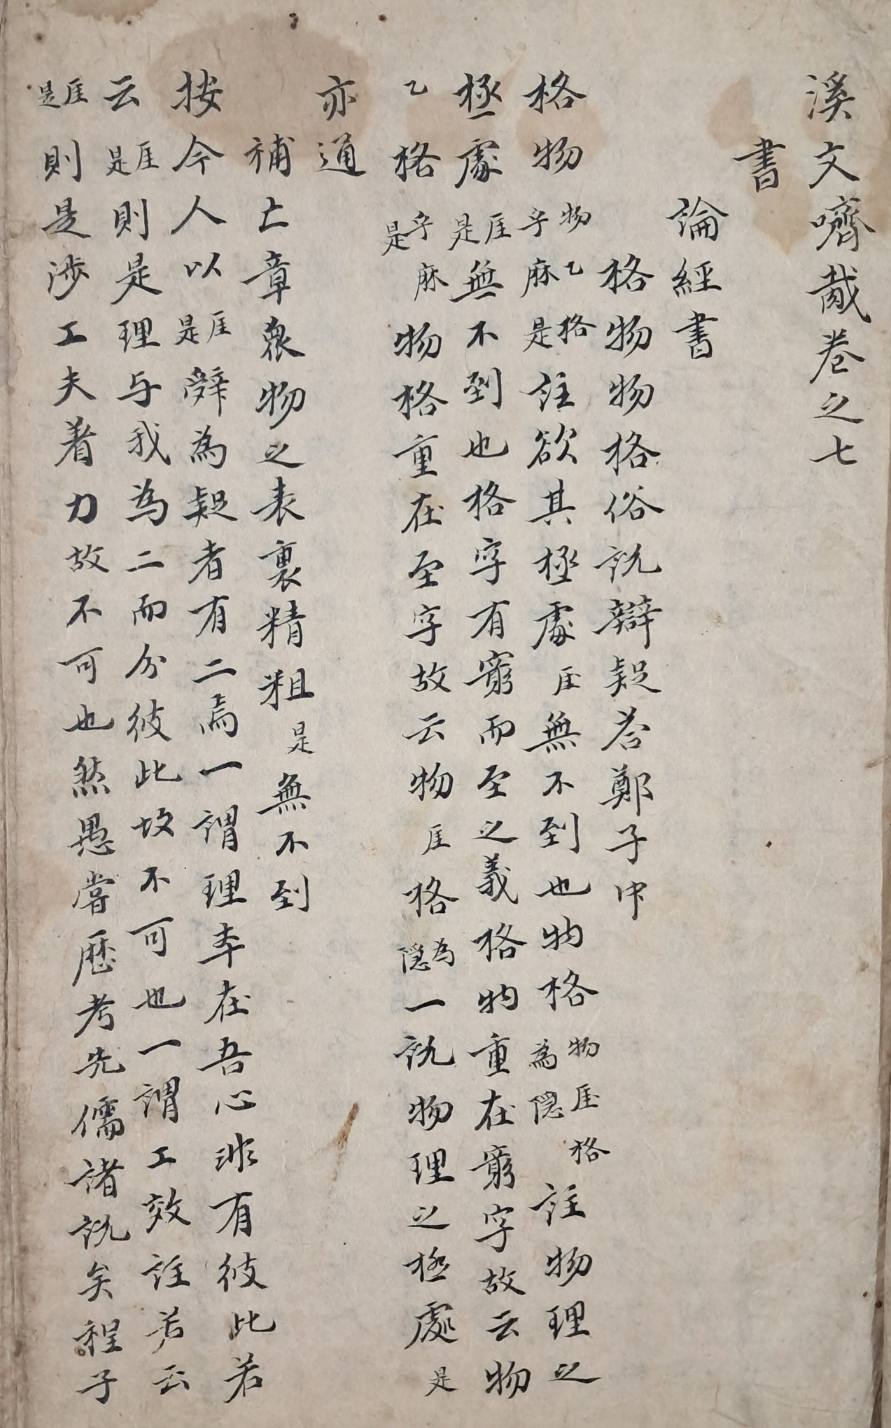 溪文嚌胾卷之七
書
論經書
格物物格俗說辯疑答鄭子中
格物物乙格乎麻是註欲其極處厓無不到也物格物厓格為隱註物理之
極處厓是無不到也格字有窮而至之義格物重在窮字故云物
乙格乎麻是物格重在至字故云物厓格為隱一說物理之極處是
亦通
補亡章衆物之表裏精粗是無不到
按今人以厓是辭為疑者有二焉一謂理本在吾心非有彼此若
云厓是則是理与我為二而分彼此故不可也一謂工效註若云
厓是則是涉工夫着力故不可也然愚嘗歷考先儒諸說矣程子